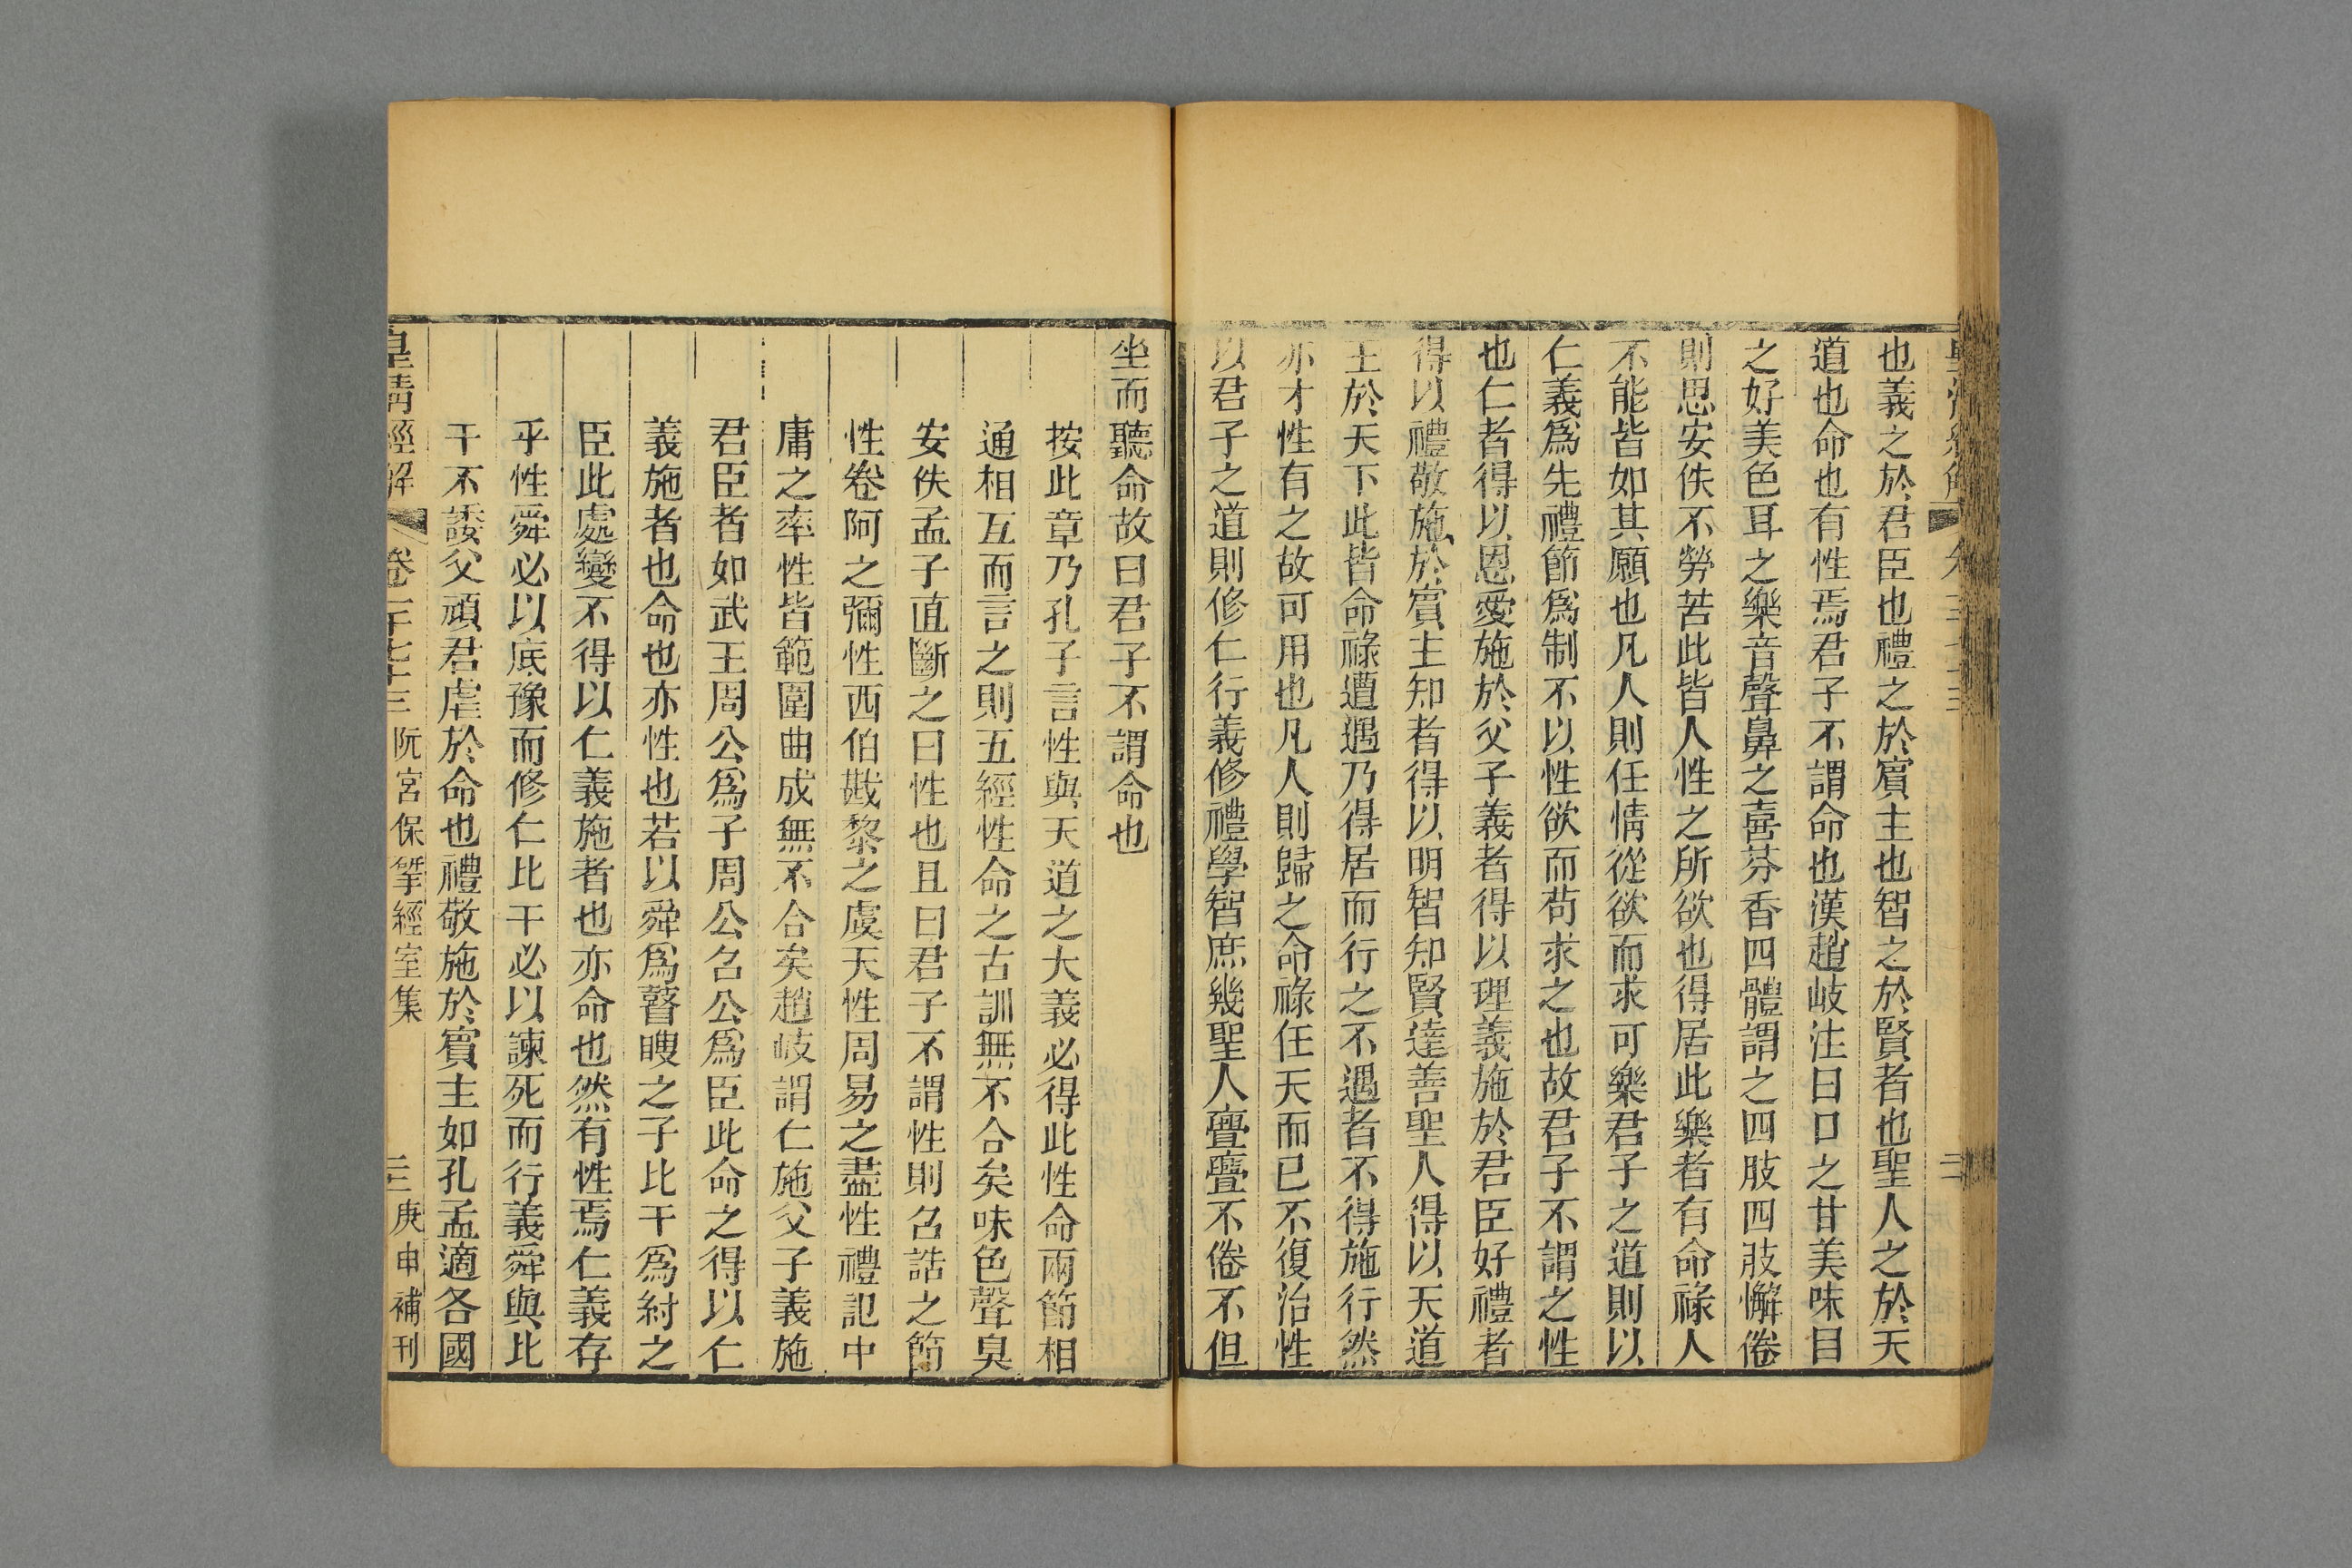 也義之於君臣也禮之於賓主也智之於賢者也聖人之於天
道也命也有性焉君子不謂命也漢趙岐注曰口之甘美味目
之好美色耳之樂音聲鼻之喜芬香四體謂之四肢四肢懈倦
則思安佚不勞苦此皆人性之所欲也得居此樂者有命祿人
不能皆如其願也凡人則任情從欲而求可樂君子之道則以
仁義爲先禮節爲制不以性欲而苟求之也故君子不謂之性
也仁者得以恩愛施於父子義者得以理義施於君臣好禮者
得以禮敬施於賓主知者得以明智知賢達善聖人得以天道
王於天下此皆命祿遭遇乃得居而行之不遇者不得施行然
亦才性有之故可用也凡人則歸之命祿任天而已不復治性
以君子之道則修仁行義修禮學智庶幾聖人亹亹不倦不但
坐而聽命故曰君子不謂命也
按此章乃孔子言性與天道之大義必得此性命兩節相
通相互而言之則五經性命之古訓無不合矣味色聲臭
安佚孟子直斷之曰性也且曰君子不謂性則召誥之節
性卷阿之彌性西伯戡黎之虞天性周易之盡性禮記中
庸之率性皆範圍曲成無不合矣趙岐謂仁施父子義施
君臣者如武王周公爲子周公召公爲臣此命之得以仁
義施者也命也亦性也若以舜爲瞽瞍之子比干爲紂之
臣此處變不得以仁義施者也亦命也然有性焉仁義存
乎性舜必以底豫而修仁比干必以諫死而行義舜與比
干不諉父頑君虐於命也禮敬施於賓主如孔孟適各國
皇淸經解 卷一千七十三 阮宮保揅經室集 三 庚申補刊